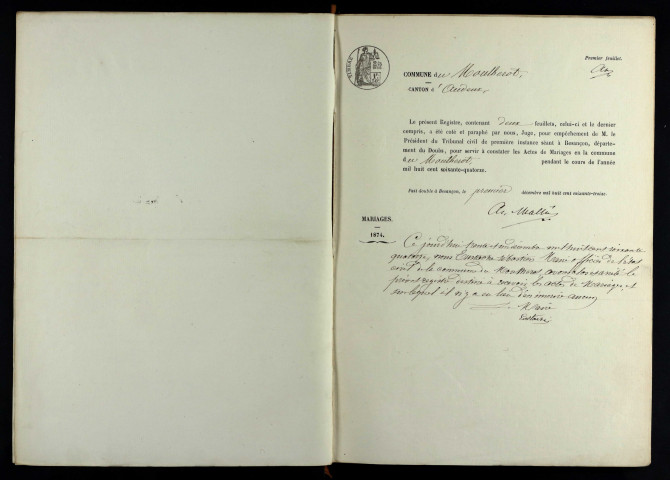 Premier feuillet.
COMMUNE de Moutherot,
CANTON d'Audeux,
Le présent Registre, contenant deux feuillets, celui-ci et le dernier
compris, a été coté et paraphé par nous, Juge, pour empêchement de M. le
Président du Tribunal civil de première instance séant à Besançon, départe-
ment du Doubs, pour servir à constater les Actes de Mariages en la commune
de Moutherot, pendant le cours de l'année
mil huit cent soixante-quatorze.
Fait double à Besançon, le premier décembre mil huit cent soixante-treize.
MARIAGES.
1874.
Ce jourd'hui trente et un décembre mil huit cent soixante
quatorze, nous Maire officier de l'état
civil de la commune de Moutherot, avons clos et arrêté le
présent registre destiné à recevoir les actes de Mariage et
sur lequel il n'y a eu lieu d'en inscrire aucun
Le Maire